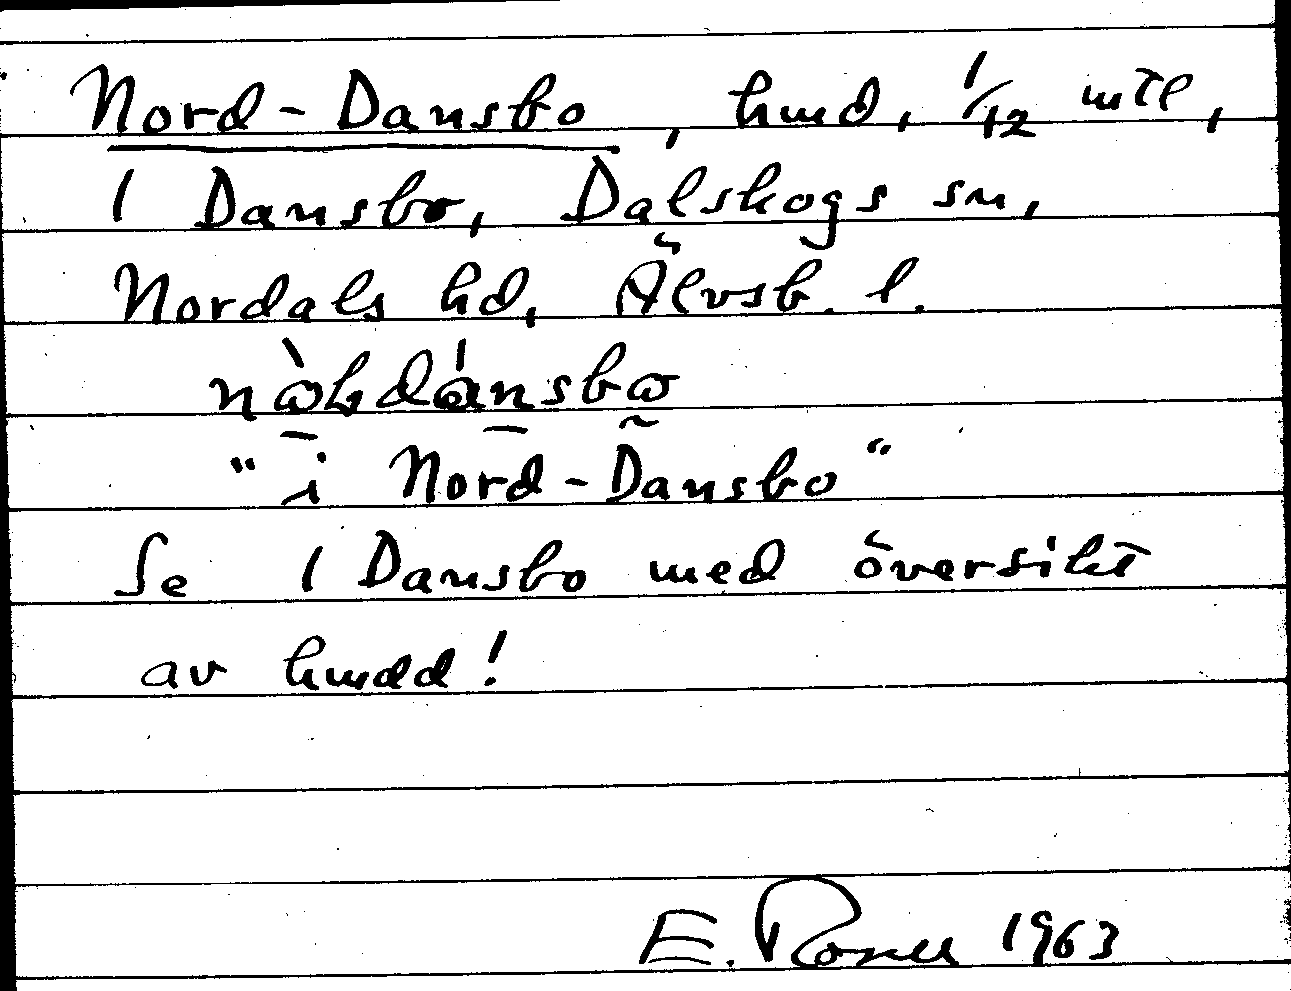 Nord-Dansbo, hmd, 1/12 mtl,
1 Dansbo, Dalskogs sn,
Nordals hd, Älvsb. l.
"i Nord-Dansbo"
Se 1 Dansbo med översikt
av hmdd!
E. 1963